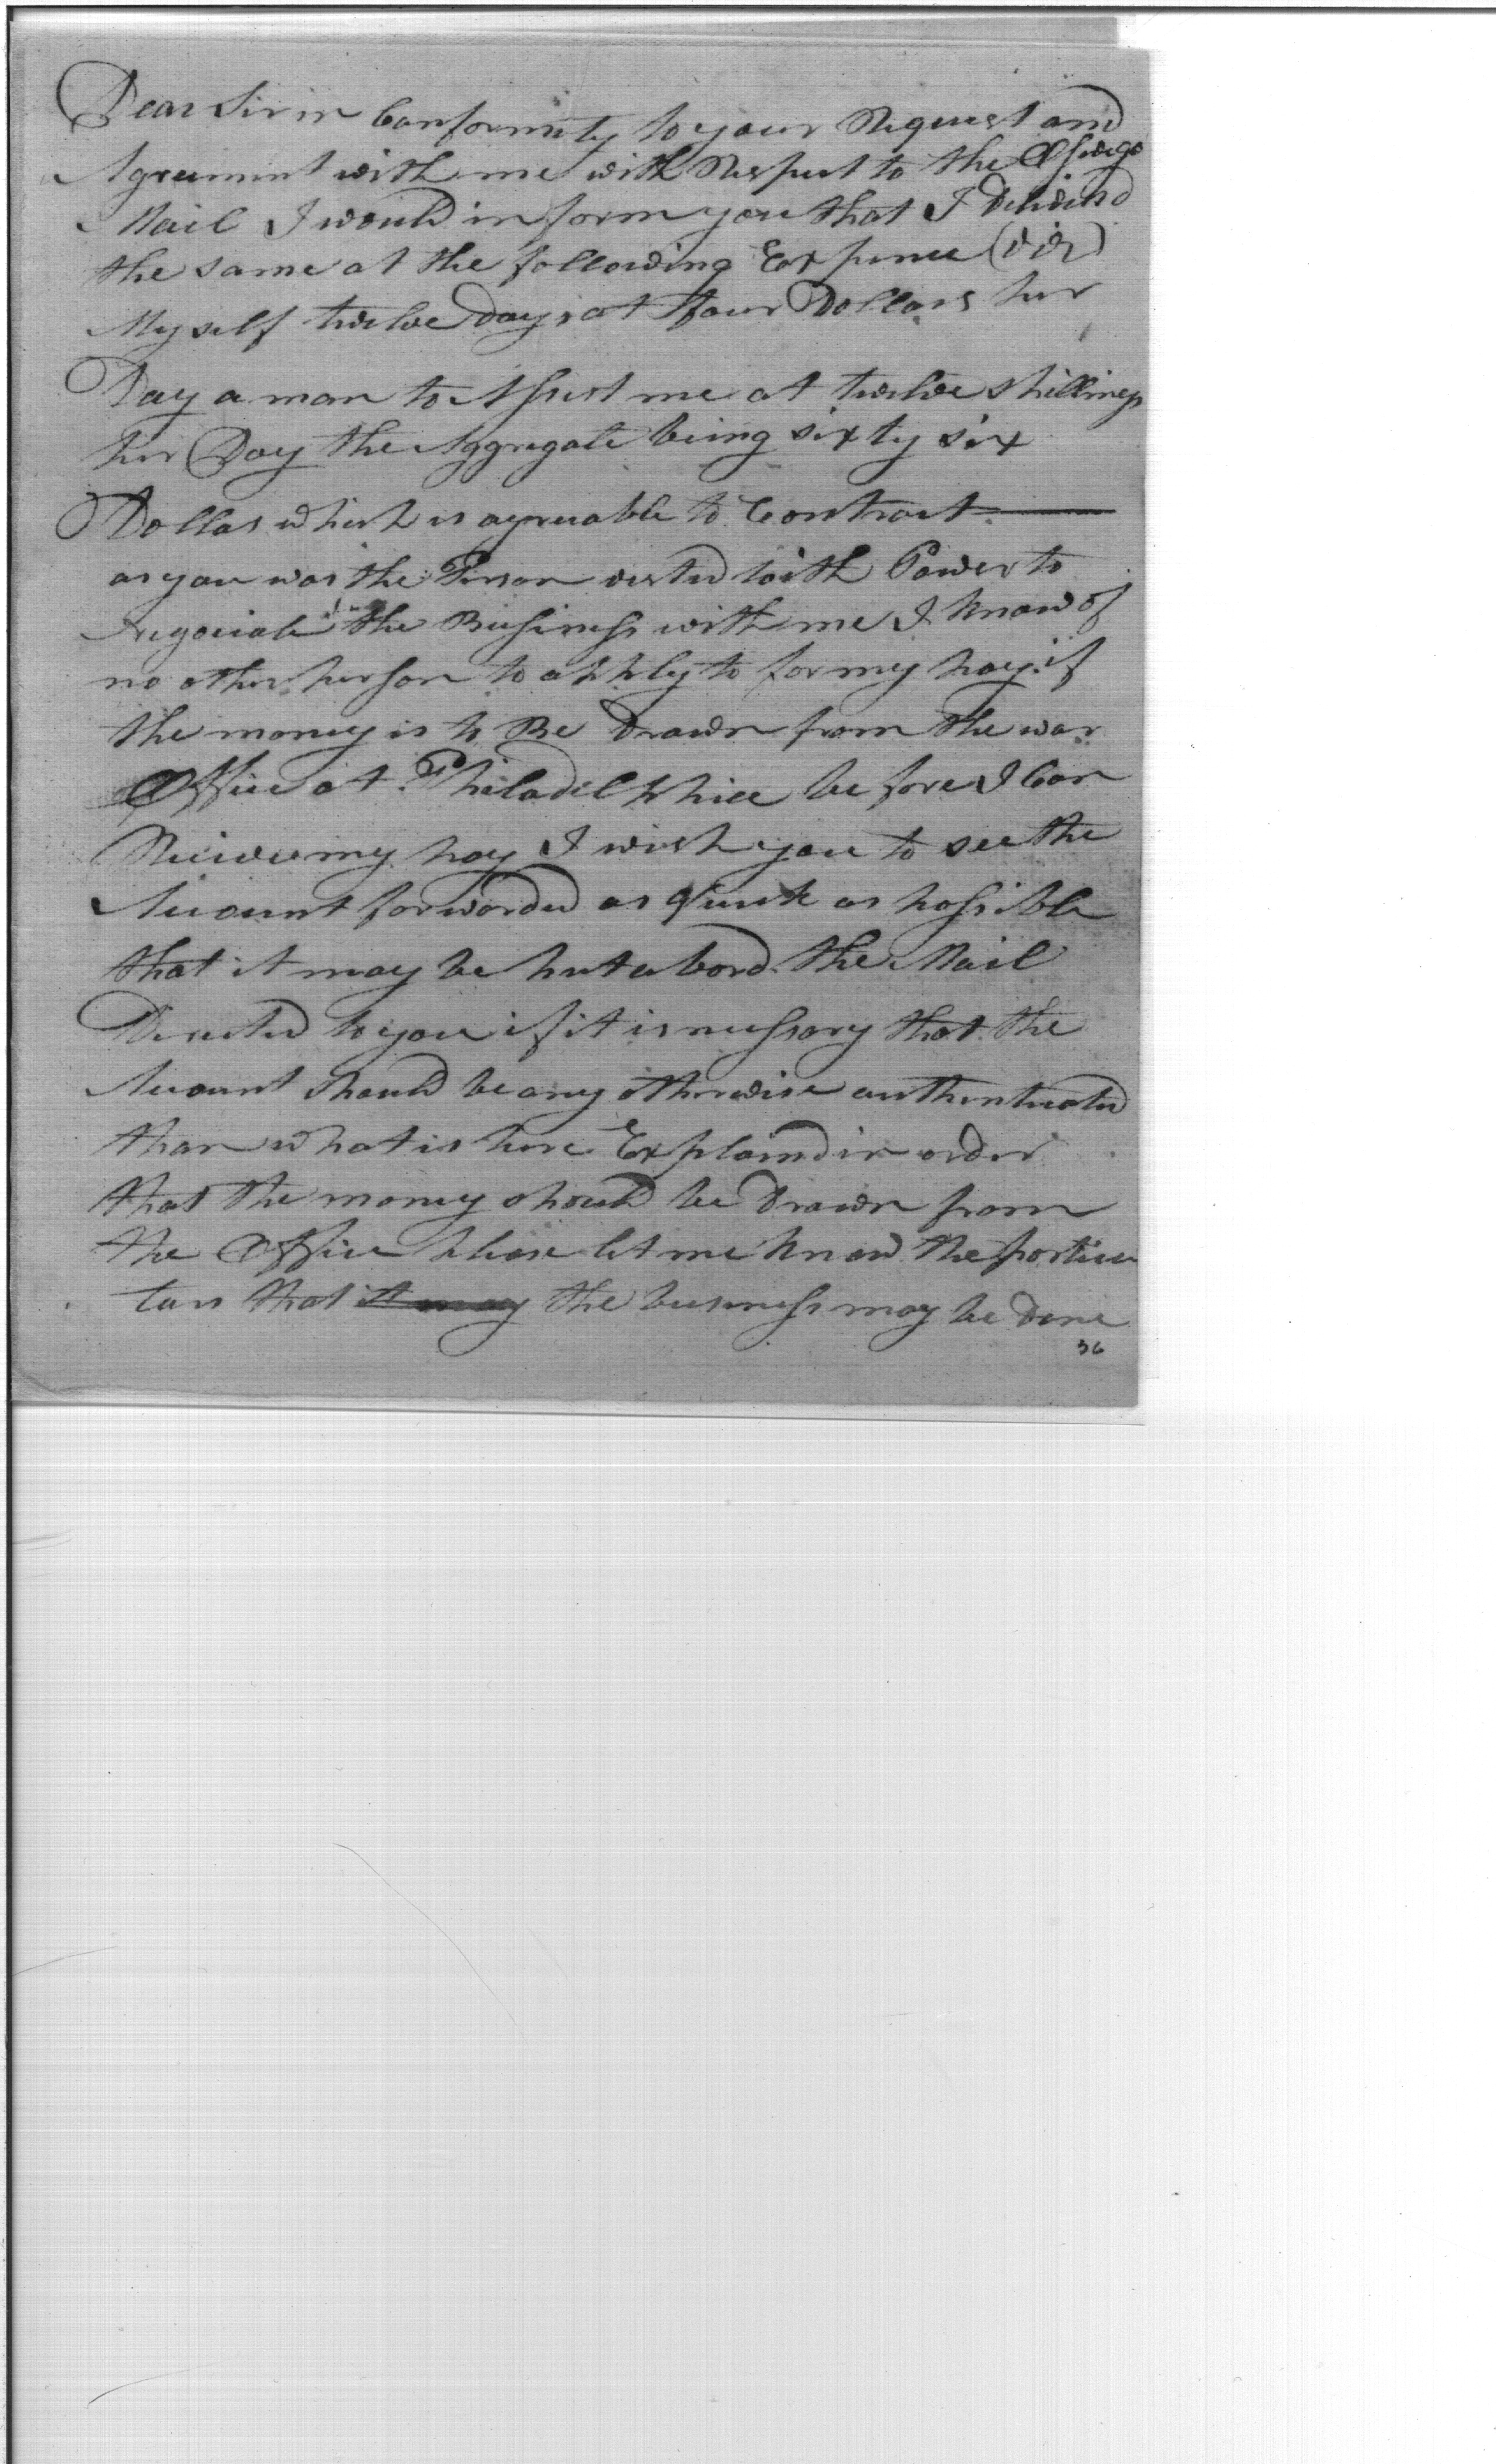 Dear Sir in Conformity to your Request and
Agreement with me with Respect to the Oswego
Mail I would inform you that I Deliverd
the same at the following Expence (viz)
Myself twelve Days at four Dollars per
Day a man to Assist me at twelve shillings
per Day the Aggregate being sixty six
Dollars which is agreeable to Contract
as you was the Person vested with Power to
Negociate the Business with me I know of
no other person to apply to for my pay if
the money is to Be Drawn from the war
Office at Philadelphia before I Can
Receive my pay I wish you to see the
Account forwarded as Quick as possible
that it may be put abord the Mail
Directed to you if it is nessary that the
Account should be any otherwise authenticated
than what is here Explaind in order
that the money should be Drawn from
the Office please let me know the particu
lars that it may the business may be Done
36